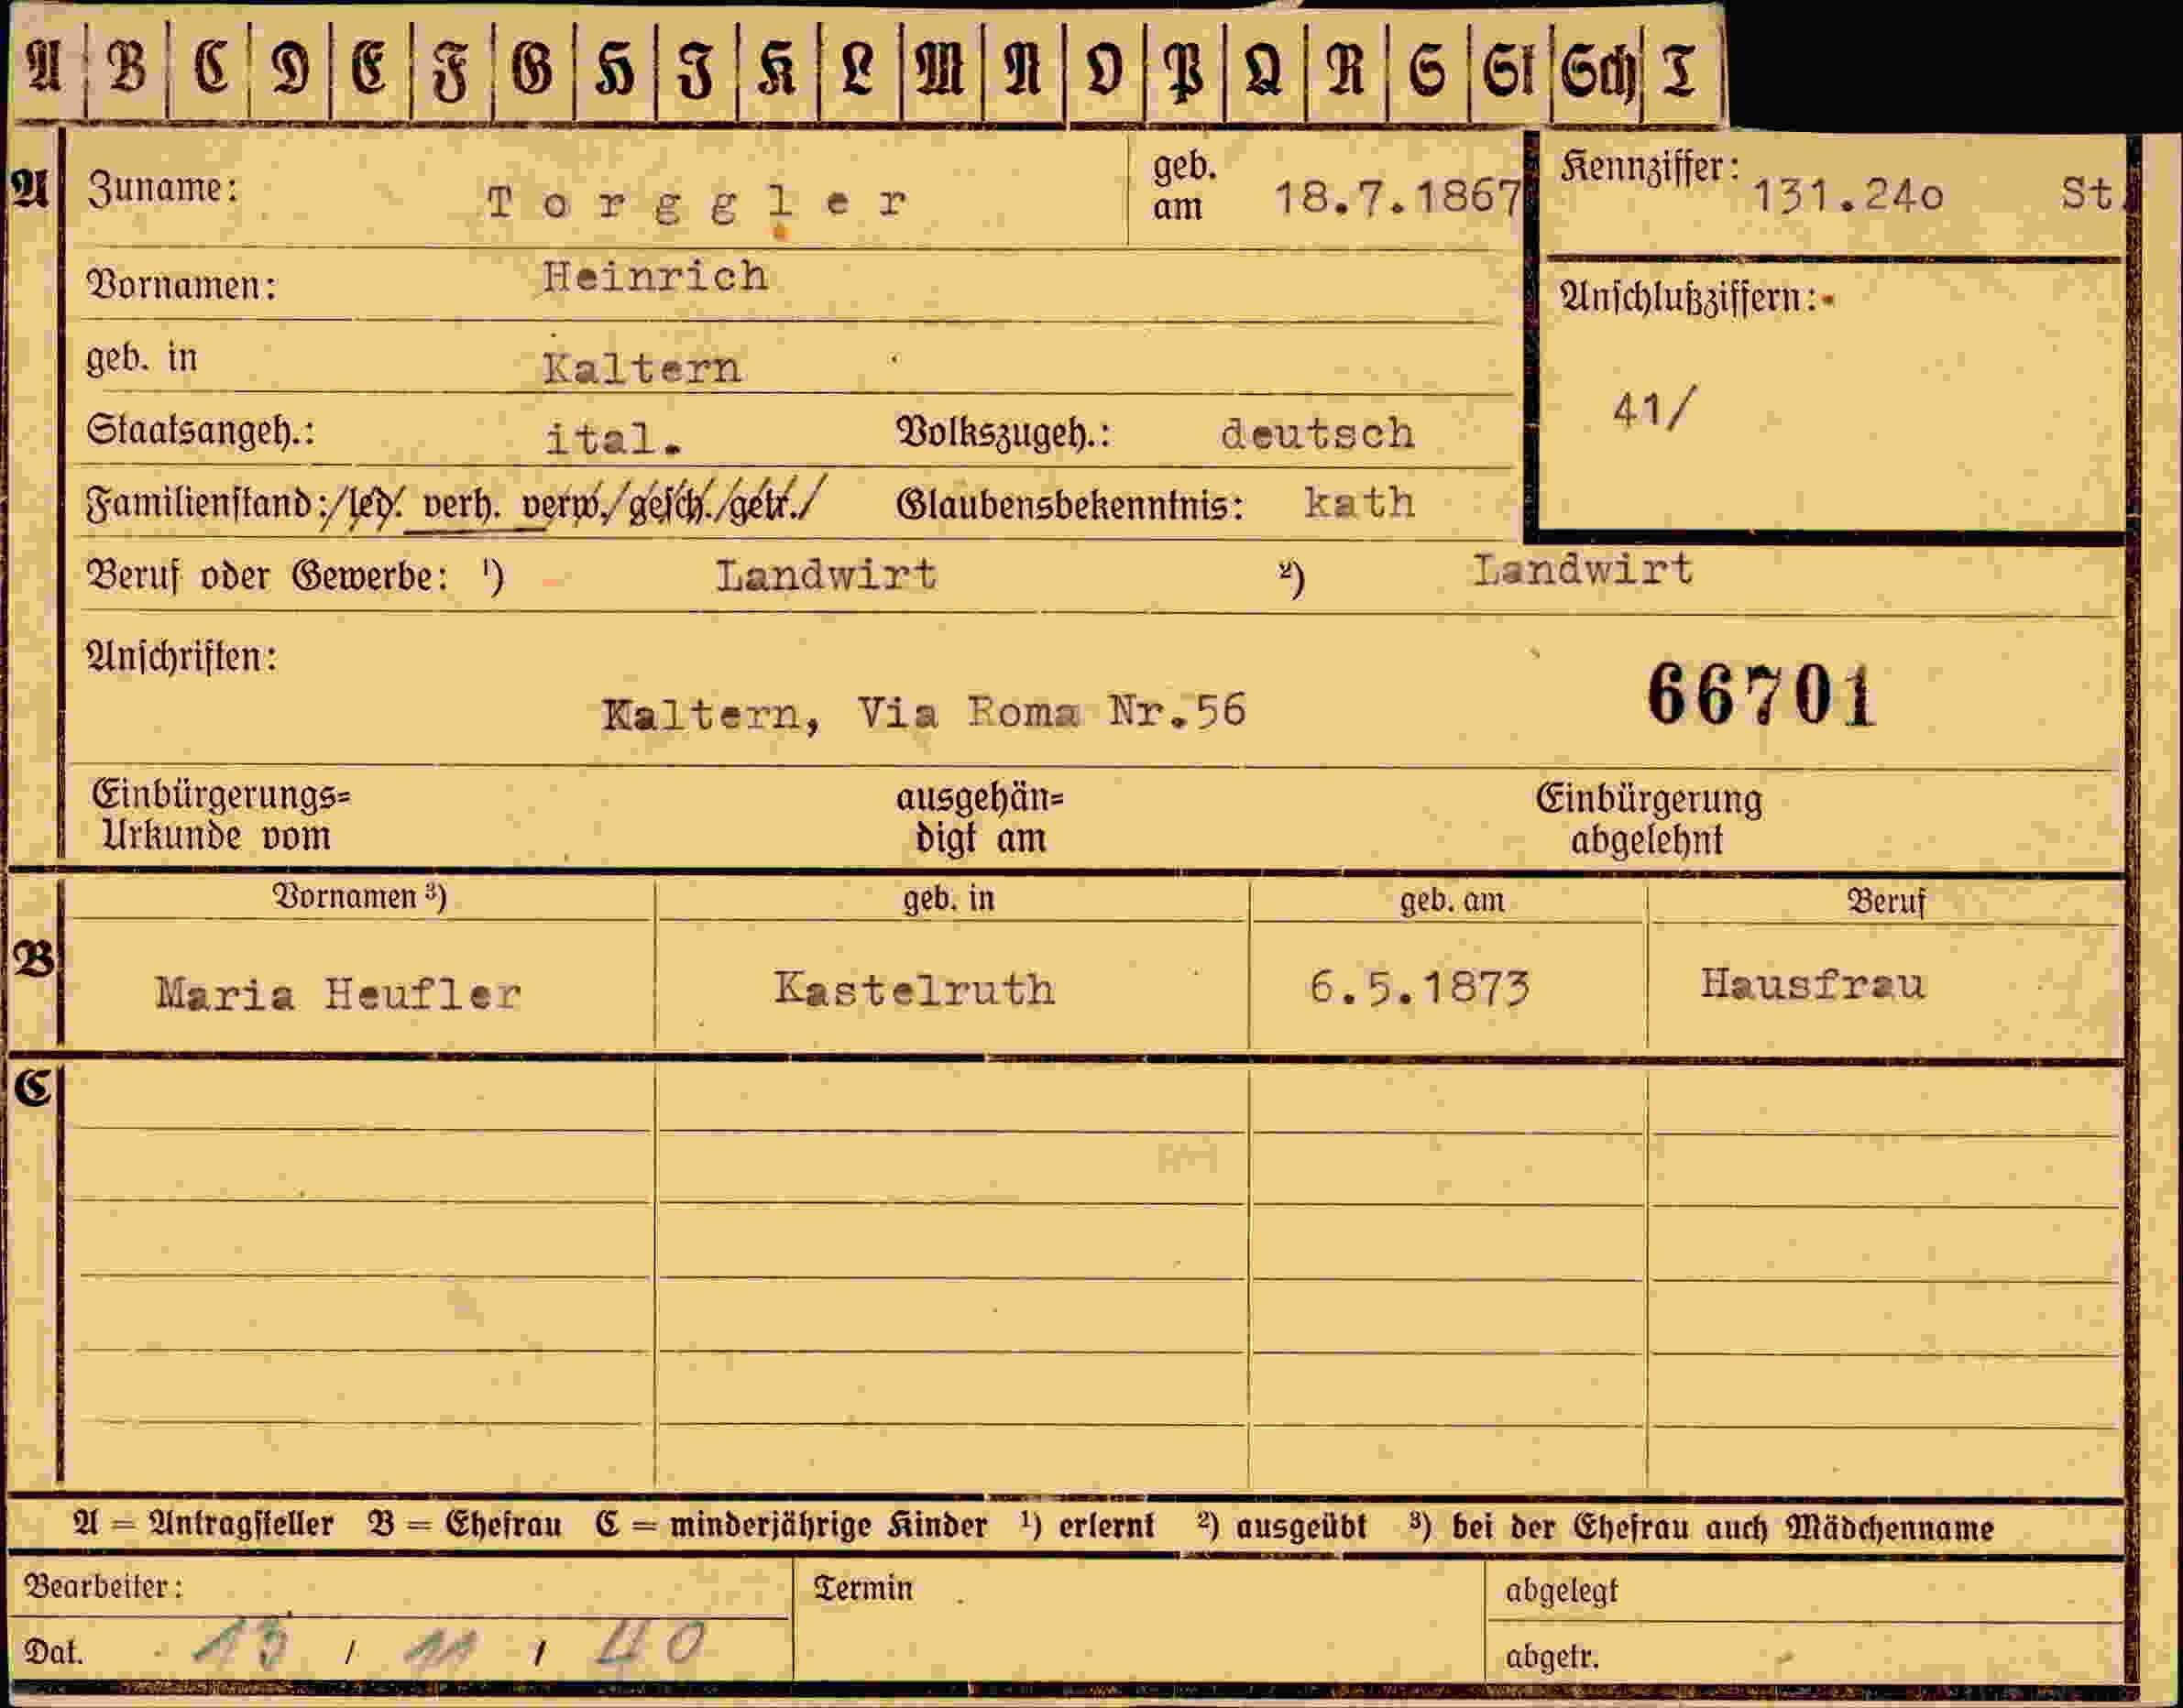 A B C D E F G H I K L M N O P Q R S St Sch T
A Zuname: Torggler geb. am 18.7.1867 Kennziffer: 131.24o St.
Vornamen: Heinrich
Anschlußziffern:
geb. in Kaltern
41/
Staatsangeh.: ital. Volkszugeh.: deutsch
Familienstand: /led/. verh. verw./gesch./getr./ Glaubensbekenntnis: kath
Beruf oder Gewerbe: ¹) Landwirt ²) Landwirt
Anschriften:
Kaltern, Via Roma Nr.56 66701
Einbürgerungs= ausgehän= Einbürgerung
Urkunde vom digt am abgelehnt
Vornamen ³) geb. in geb. am Beruf
B Maria Heufler Kastelruth 6.5.1873 Hausfrau
C
A = Antragsteller B = Ehefrau C = minderjährige Kinder ¹) erlernt ²) ausgeübt ³) bei der Ehefrau auch Mädchenname
Bearbeiter: Termin abgelegt
Dat. 13 / 11 / 40 abgetr.